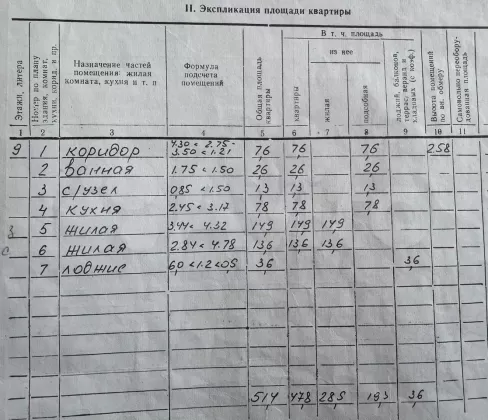 II. Экспликация площади квартиры
Этажи, литера
Номер по плану здания, комнат, кухни, корид. и пр.
Назначение частей помещения: жилая комната, кухня и т. п
Формула подсчета помещений
Общая площадь квартиры
В т. ч. площадь
квартиры
из нее
жилая
подсобная
лоджий, балконов, террас, веранд и кладовых (с коэф.)
Высота помещений по вн. обмеру
Самовольно переоборудованная площадь
1 2 3 4 5 6 7 8 9 10 11
9 1 коридор 4.30 × 2.75 - 3.50 × 1.21 7,6 7,6 7,6 2.58
2 ванная 1.75 × 1.50 2,6 2,6 2,6
3 с/узел 0,85 × 1.50 1,3 1,3 1,3
4 кухня 2.45 × 3.17 7,8 7,8 7,8
5 жилая 3.44 × 4.32 14,9 14,9 14,9
6 жилая 2.84 × 4.78 13,6 13,6 13,6
7 лоджие 6,0 × 1.2 × 0,5 3,6 3,6
51,4 47,8 28,5 19,3 3,6